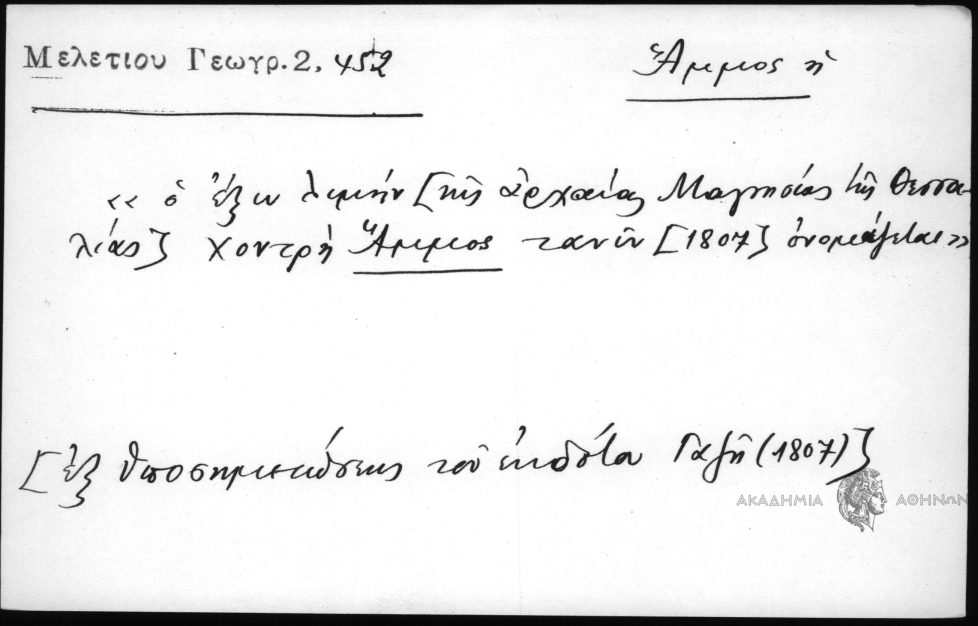 Μελετιου Γεωγρ. 2, 452
Ἄμμος ἡ
«ὁ ἔξω λιμὴν [τῆς ἀρχαίας Μαγνησίας τῆς Θεσσα-
λίας] χοντρὴ Ἄμμος τανῦν [1807] ὀνομάζεται»
[ἐξ ὑποσημειώσεως τοῦ ἐκδότου Γαζῆ (1807)]
ΑΚΑΔΗΜΙΑ ΑΘΗΝΩΝ